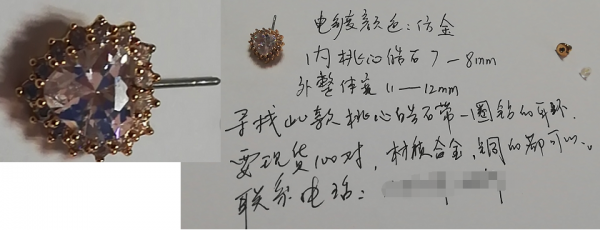 电镀颜色:仿金
内桃心皓石7—8mm
外整体宽11—12mm
寻找此款桃心皓石带一圈钻的耳环.
要现货100对,材质合金,铜的都可以。
联系电话: